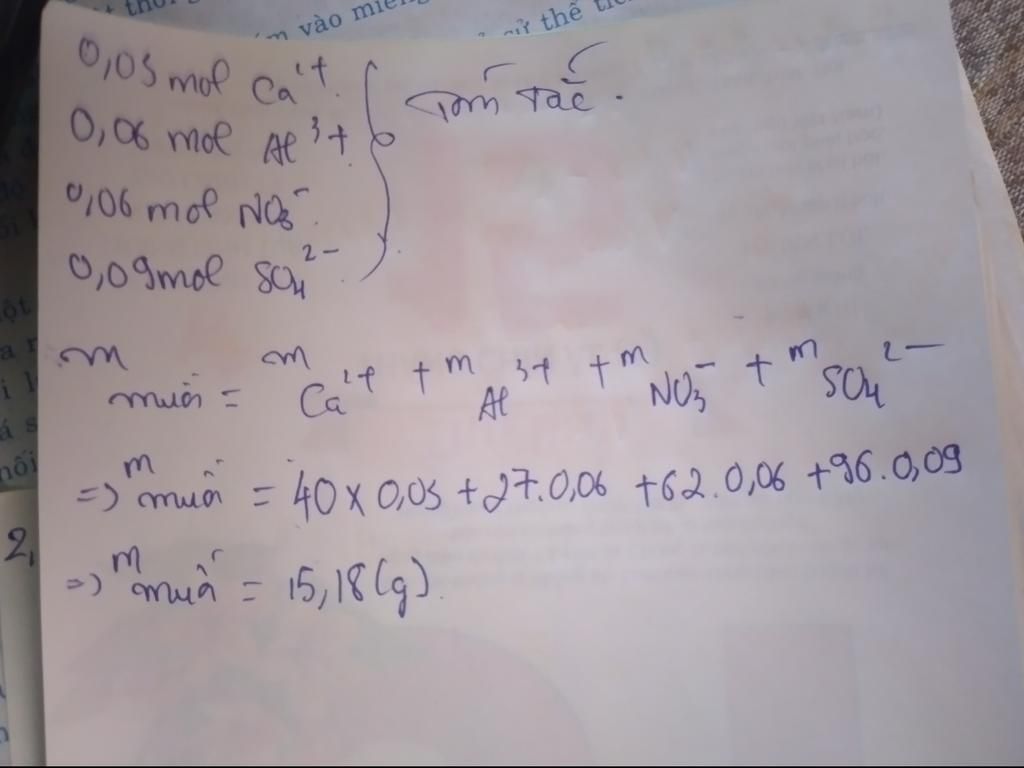 vào miếng
thế
0,03 mol Ca²⁺.
0,06 mol Al³⁺
0,06 mol NO₃⁻.
0,09 mol SO₄²⁻
Tóm Tắc.
m muối = m Ca²⁺ + m Al³⁺ + m NO₃⁻ + m SO₄²⁻
=> m muối = 40 x 0,03 + 27.0,06 + 62.0,06 + 96.0,09
2,
=> m muối = 15,18 (g).